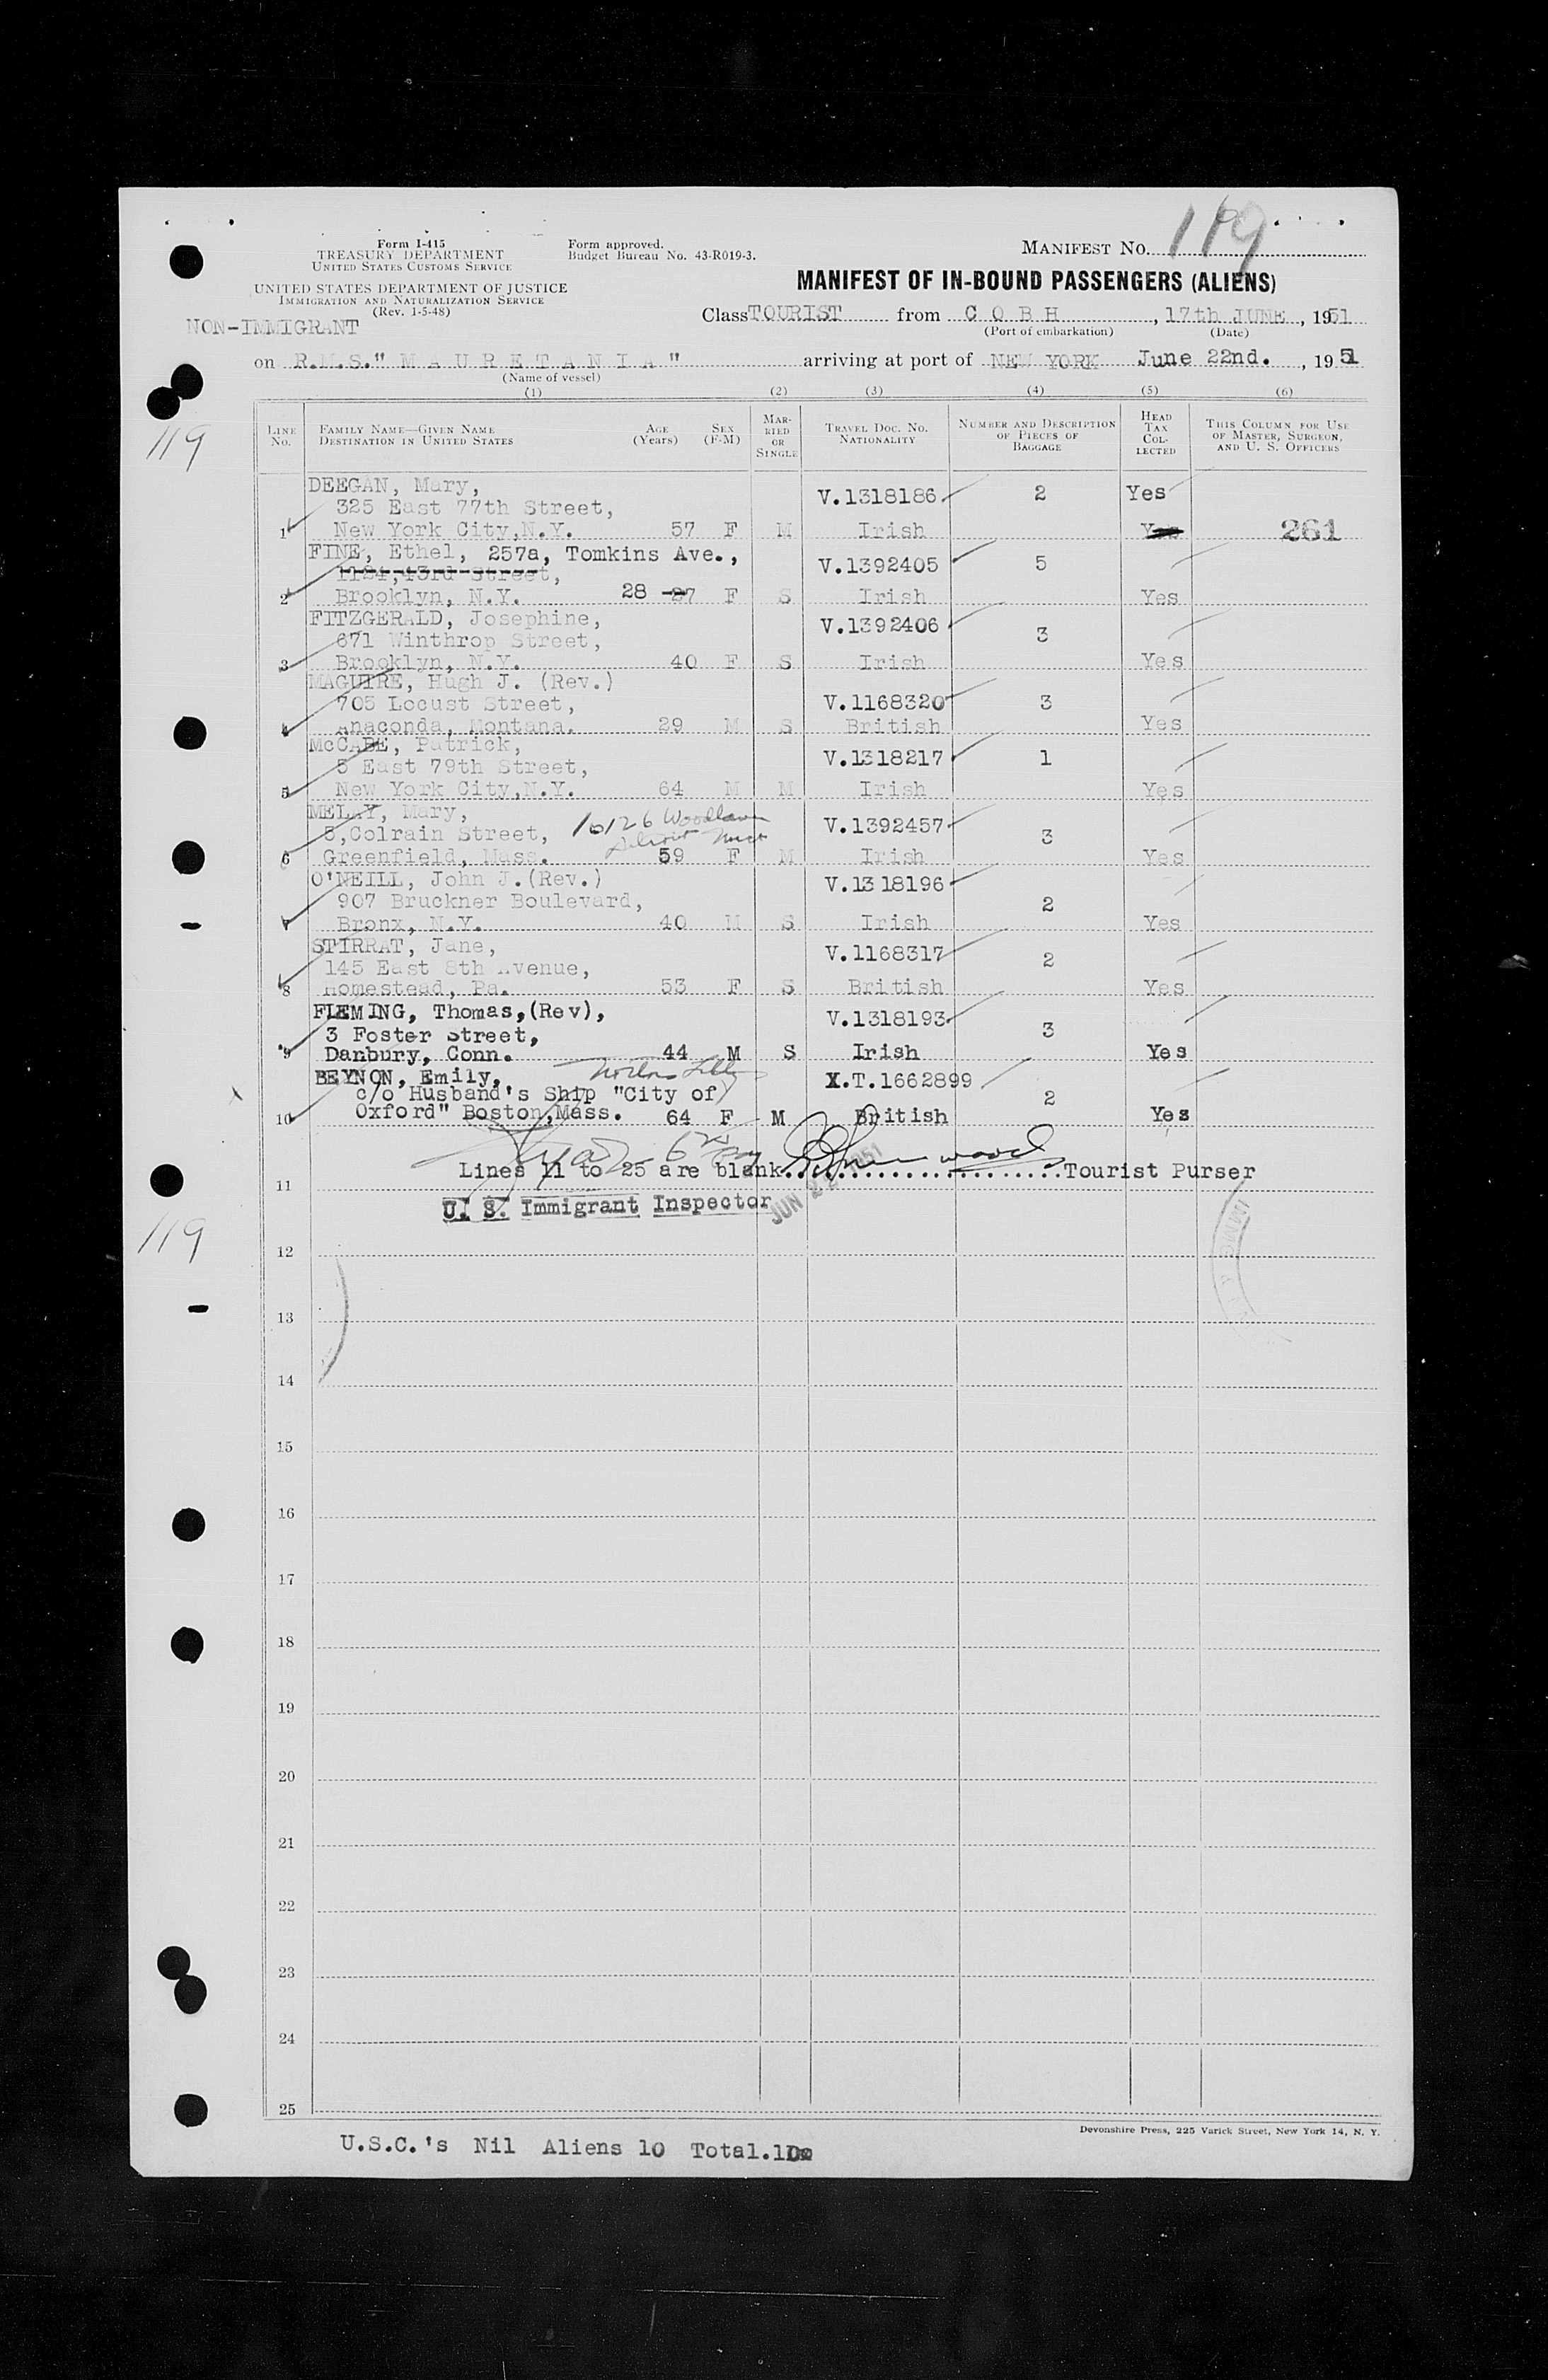 Form I-415
TREASURY DEPARTMENT
UNITED STATES CUSTOMS SERVICE
UNITED STATES DEPARTMENT OF JUSTICE
IMMIGRATION AND NATURALIZATION SERVICE
(Rev. 1-5-48)
NON-IMMIGRANT
Form approved.
Budget Bureau No. 43-R019-3.
MANIFEST NO. 119
MANIFEST OF IN-BOUND PASSENGERS (ALIENS)
Class TOURIST from C O B H, 17th JUNE, 1951
(Port of embarkation) (Date)
on R.M.S." M A U R E T A N I A " arriving at port of NEW YORK June 22nd., 1951
(Name of vessel)
(1) (2) (3) (4) (5) (6)
119
LINE No. FAMILY NAME—GIVEN NAME DESTINATION IN UNITED STATES AGE (Years) SEX (F-M) MARRIED OR SINGLE TRAVEL DOC. NO. NATIONALITY NUMBER AND DESCRIPTION OF PIECES OF BAGGAGE HEAD TAX COLLECTED THIS COLUMN FOR USE OF MASTER, SURGEON, AND U. S. OFFICERS
DEEGAN, Mary,
325 East 77th Street, V.1318186 2 Yes
1 New York City,N.Y. 57 F M Irish Yes 261
FINE, Ethel, 257a, Tomkins Ave.,
1124,43rd Street, V.1392405 5
2 Brooklyn, N.Y. 28 27 F S Irish Yes
FITZGERALD, Josephine, V.1392406
671 Winthrop Street, 3
3 Brooklyn, N.Y. 40 F S Irish Yes
MAGUIRE, Hugh J. (Rev.)
705 Locust Street, V.1168320 3
4 Anaconda, Montana. 29 M S British Yes
McCABE, Patrick,
5 East 79th Street, V.1318217 1
5 New York City,N.Y. 64 M M Irish Yes
MELAY, Mary, 16126 Woodlawn
5,Colrain Street, Detroit Mich V.1392457 3
6 Greenfield, Mass. 59 F M Irish Yes
O'NEILL, John J.(Rev.) V.1318196
907 Bruckner Boulevard, 2
7 Bronx, N.Y. 40 M S Irish Yes
STIRRAT, Jane, V.1168317
145 East 8th Avenue, 2
8 Homestead, Pa. 53 F S British Yes
FLEMING, Thomas,(Rev), V.1318193
3 Foster Street, 3
9 Danbury, Conn. 44 M S Irish Yes
BEYNON, Emily, X.T.1662899
c/o Husband's Ship "City of 2
10 Oxford" Boston,Mass. 64 F M British Yes
Lines 11 to 25 are blank. Tourist Purser
11
U. S. Immigrant Inspector
JUN 22 1951
119
12
13
14
15
16
17
18
19
20
21
22
23
24
25
Devonshire Press, 225 Varick Street, New York 14, N. Y.
U.S.C.'s Nil Aliens 10 Total.10